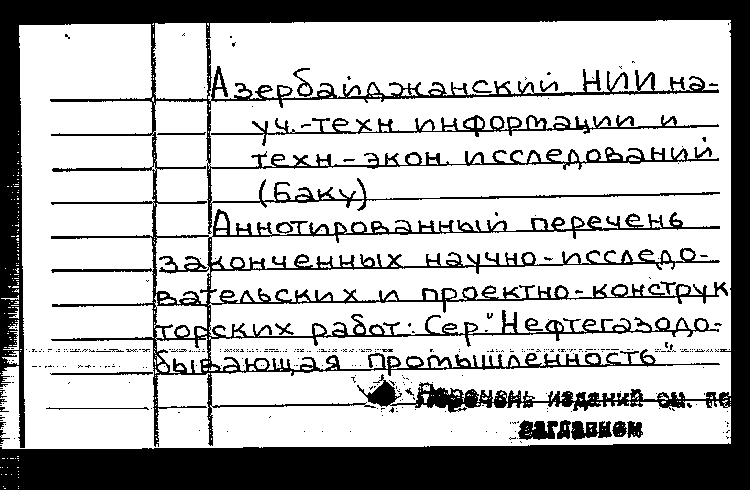 Азербайджанский НИИ на-
уч.-техн информации и
техн.-экон. исследований
(Баку)
Аннотированный перечень
законченных научно-исследо-
вательских и проектно-конструк
торских работ: Сер."Нефтегазодо-
бывающая промышленность"
Перечень изданий см. по